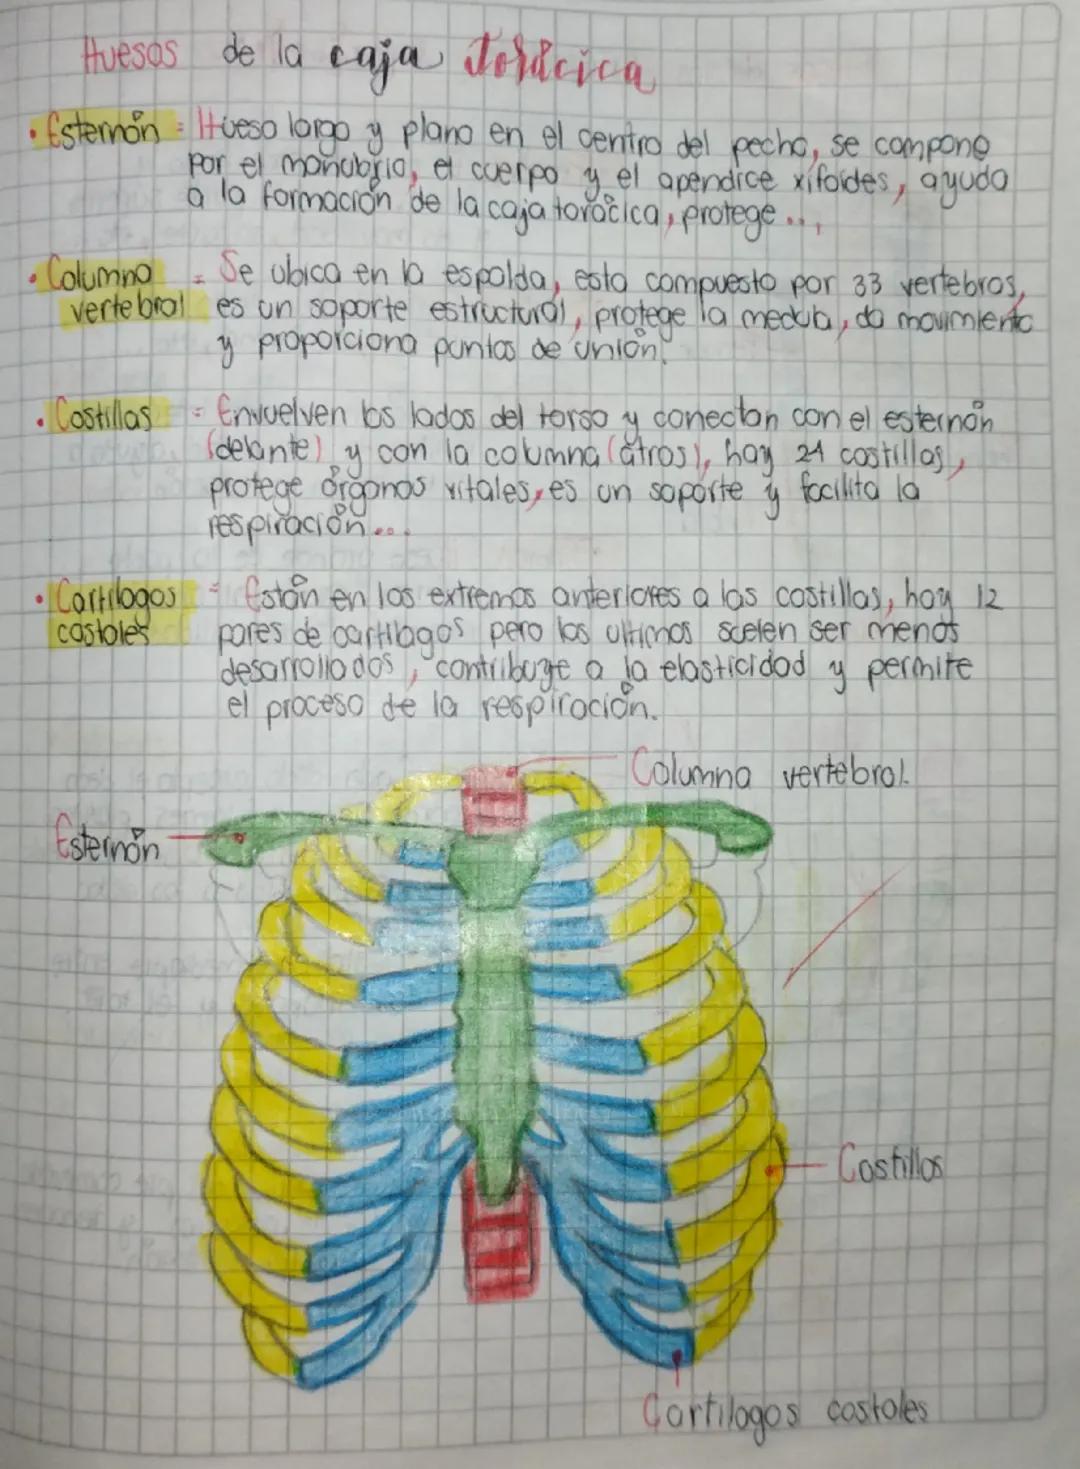 Huesos de la caja torácica
• Esternón = Hueso largo y plano en el centro del pecho, se compone
por el manubrio, el cuerpo y el apendice xifoides, ayuda
a la formación de la caja torácica, protege ...,
• Columna = Se ubica en la espalda, esta compuesto por 33 vertebras,
vertebral es un soporte estructural, protege la medula, da movimiento
y proporciona puntos de unión.
• Costillas = Envuelven los lados del torso y conectan con el esternón
(delante) y con la columna (atras), hay 24 costillas,
protege órganos vitales, es un soporte y facilita la
respiración...
• Cartilagos = Están en los extremos anteriores a las costillas, hay 12
costales pares de cartilagos pero los ultimos suelen ser menos
desarrollados, contribuye a la elasticidad y permite
el proceso de la respiración.
Columna vertebral.
Esternón
Costillas
Cartilagos costales